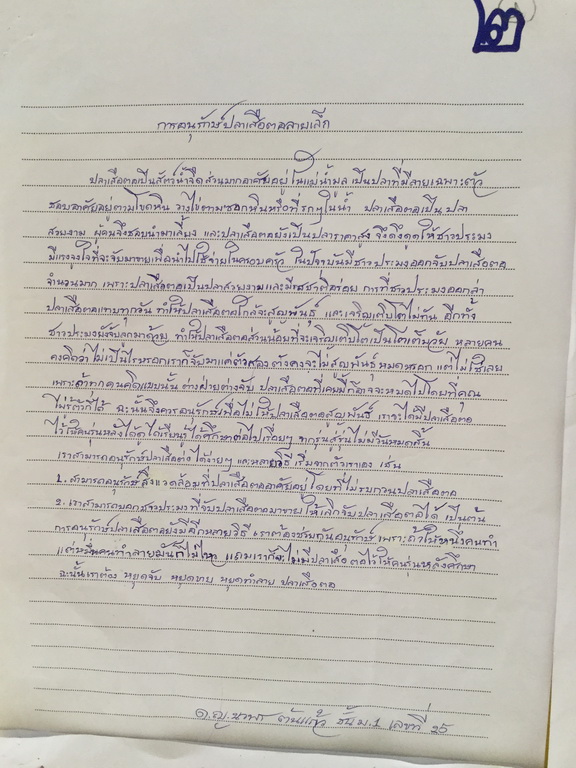 ๒๓
การอนุรักษ์ปลาเสือตอลายเล็ก
ปลาเสือตอเป็นสัตว์น้ำจืดส่วนมากอาศัยอยู่ในแม่น้ำมูล เป็นปลาที่มีลายเฉพาะตัว
ชอบอาศัยอยู่ตามโขดหิน วางไข่ตามซอกหินหรือที่รกๆในน้ำ ปลาเสือตอเป็นปลา
สวยงาม ผู้คนจึงชอบนำมาเลี้ยง และปลาเสือตอยังเป็นปลาราคาสูง จึงดึงดูดให้ชาวประมง
มีแรงจูงใจที่จะจับมาขายเพื่อนำไปใช้จ่ายในครอบครัว ในปัจจุบันมีชาวประมงออกจับปลาเสือตอ
จำนวนมาก เพราะปลาเสือตอเป็นปลาสวยงามและมีรสชาติอร่อย การที่ชาวประมงออกล่า
ปลาเสือตอแทบทุกวัน ทำให้ปลาเสือตอใกล้จะสูญพันธุ์ และเจริญเติบโตไม่ทัน อีกทั้ง
ชาวประมงยังจับลูกมาด้วย ทำให้ปลาเสือตอส่วนน้อยที่จะเจริญเติบโตเป็นโตเต็มวัย หลายคน
คงคิดว่าไม่เป็นไรหรอกเราก็จับมาแค่ตัวสองตัวคงจะไม่สูญพันธุ์หมดหรอก แต่ไม่ใช่เลย
เพราะถ้าทุกคนคิดแบบนั้น ต่างฝ่ายต่างจับ ปลาเสือตอที่เคยมีก็อาจจะหมดไปโดยที่คุณ
ไม่รู้ตัวก็ได้ ฉะนั้นจึงควรอนุรักษ์เพื่อไม่ให้ปลาเสือตอสูญพันธุ์ เราจะได้มีปลาเสือตอ
ไว้ให้คนรุ่นหลังได้ดูได้เรียนรู้ได้ศึกษาต่อไปเรื่อยๆ จากรุ่นสู่รุ่นไม่มีวันหมดสิ้น
เราสามารถอนุรักษ์ปลาเสือตอได้ง่ายๆ และหลายวิธี เริ่มจากตัวเราเอง เช่น
1. สามารถอนุรักษ์สิ่งแวดล้อมที่ปลาเสือตออาศัยอยู่ โดยที่ไม่รบกวนปลาเสือตอ
2. เราสามารถบอกชาวประมงที่จับปลาเสือตอมาขาย ให้เลิกจับปลาเสือตอได้ เป็นต้น
การอนุรักษ์ปลาเสือตอยังมีอีกหลายวิธี เราต้องช่วยกันอนุรักษ์ เพราะถ้าให้หนึ่งคนทำ
แต่หมื่นคนทำลายมันก็ไม่ไหว แถมเราก็จะไม่มีปลาเสือตอไว้ให้คนรุ่นหลังศึกษา
ฉะนั้นเราต้อง หยุดจับ หยุดทำลาย ปลาเสือตอ
ด.ญ. ต้นแก้ว ชั้น ม.1 เลขที่ 25